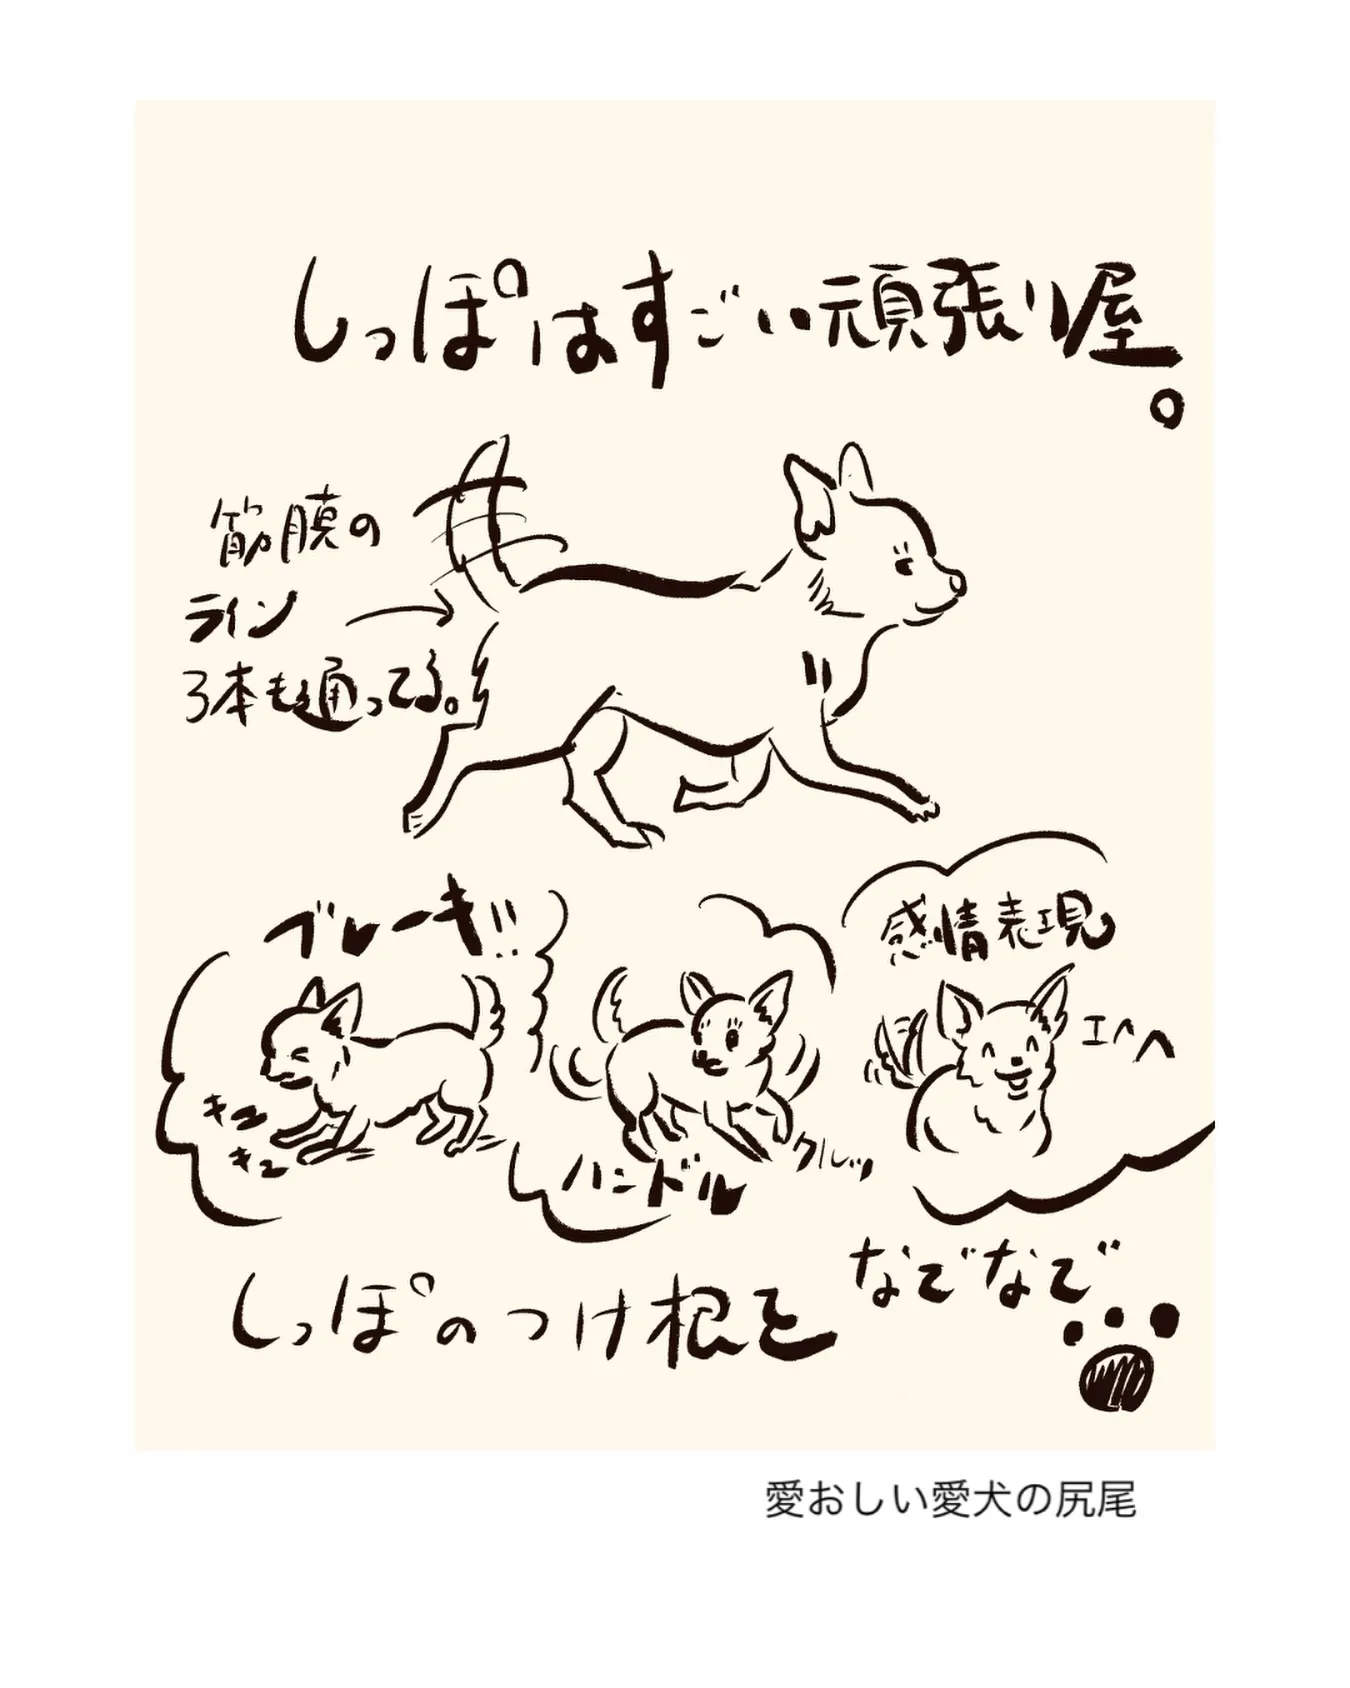 しっぽはすごい頑張り屋。
筋膜の
ライン
3本も通ってる。
ブレーキ!!
キュ
キュ
ハンドル
クルッ
感情表現
エヘヘ
しっぽのつけ根を
なでなで
愛おしい愛犬の尻尾